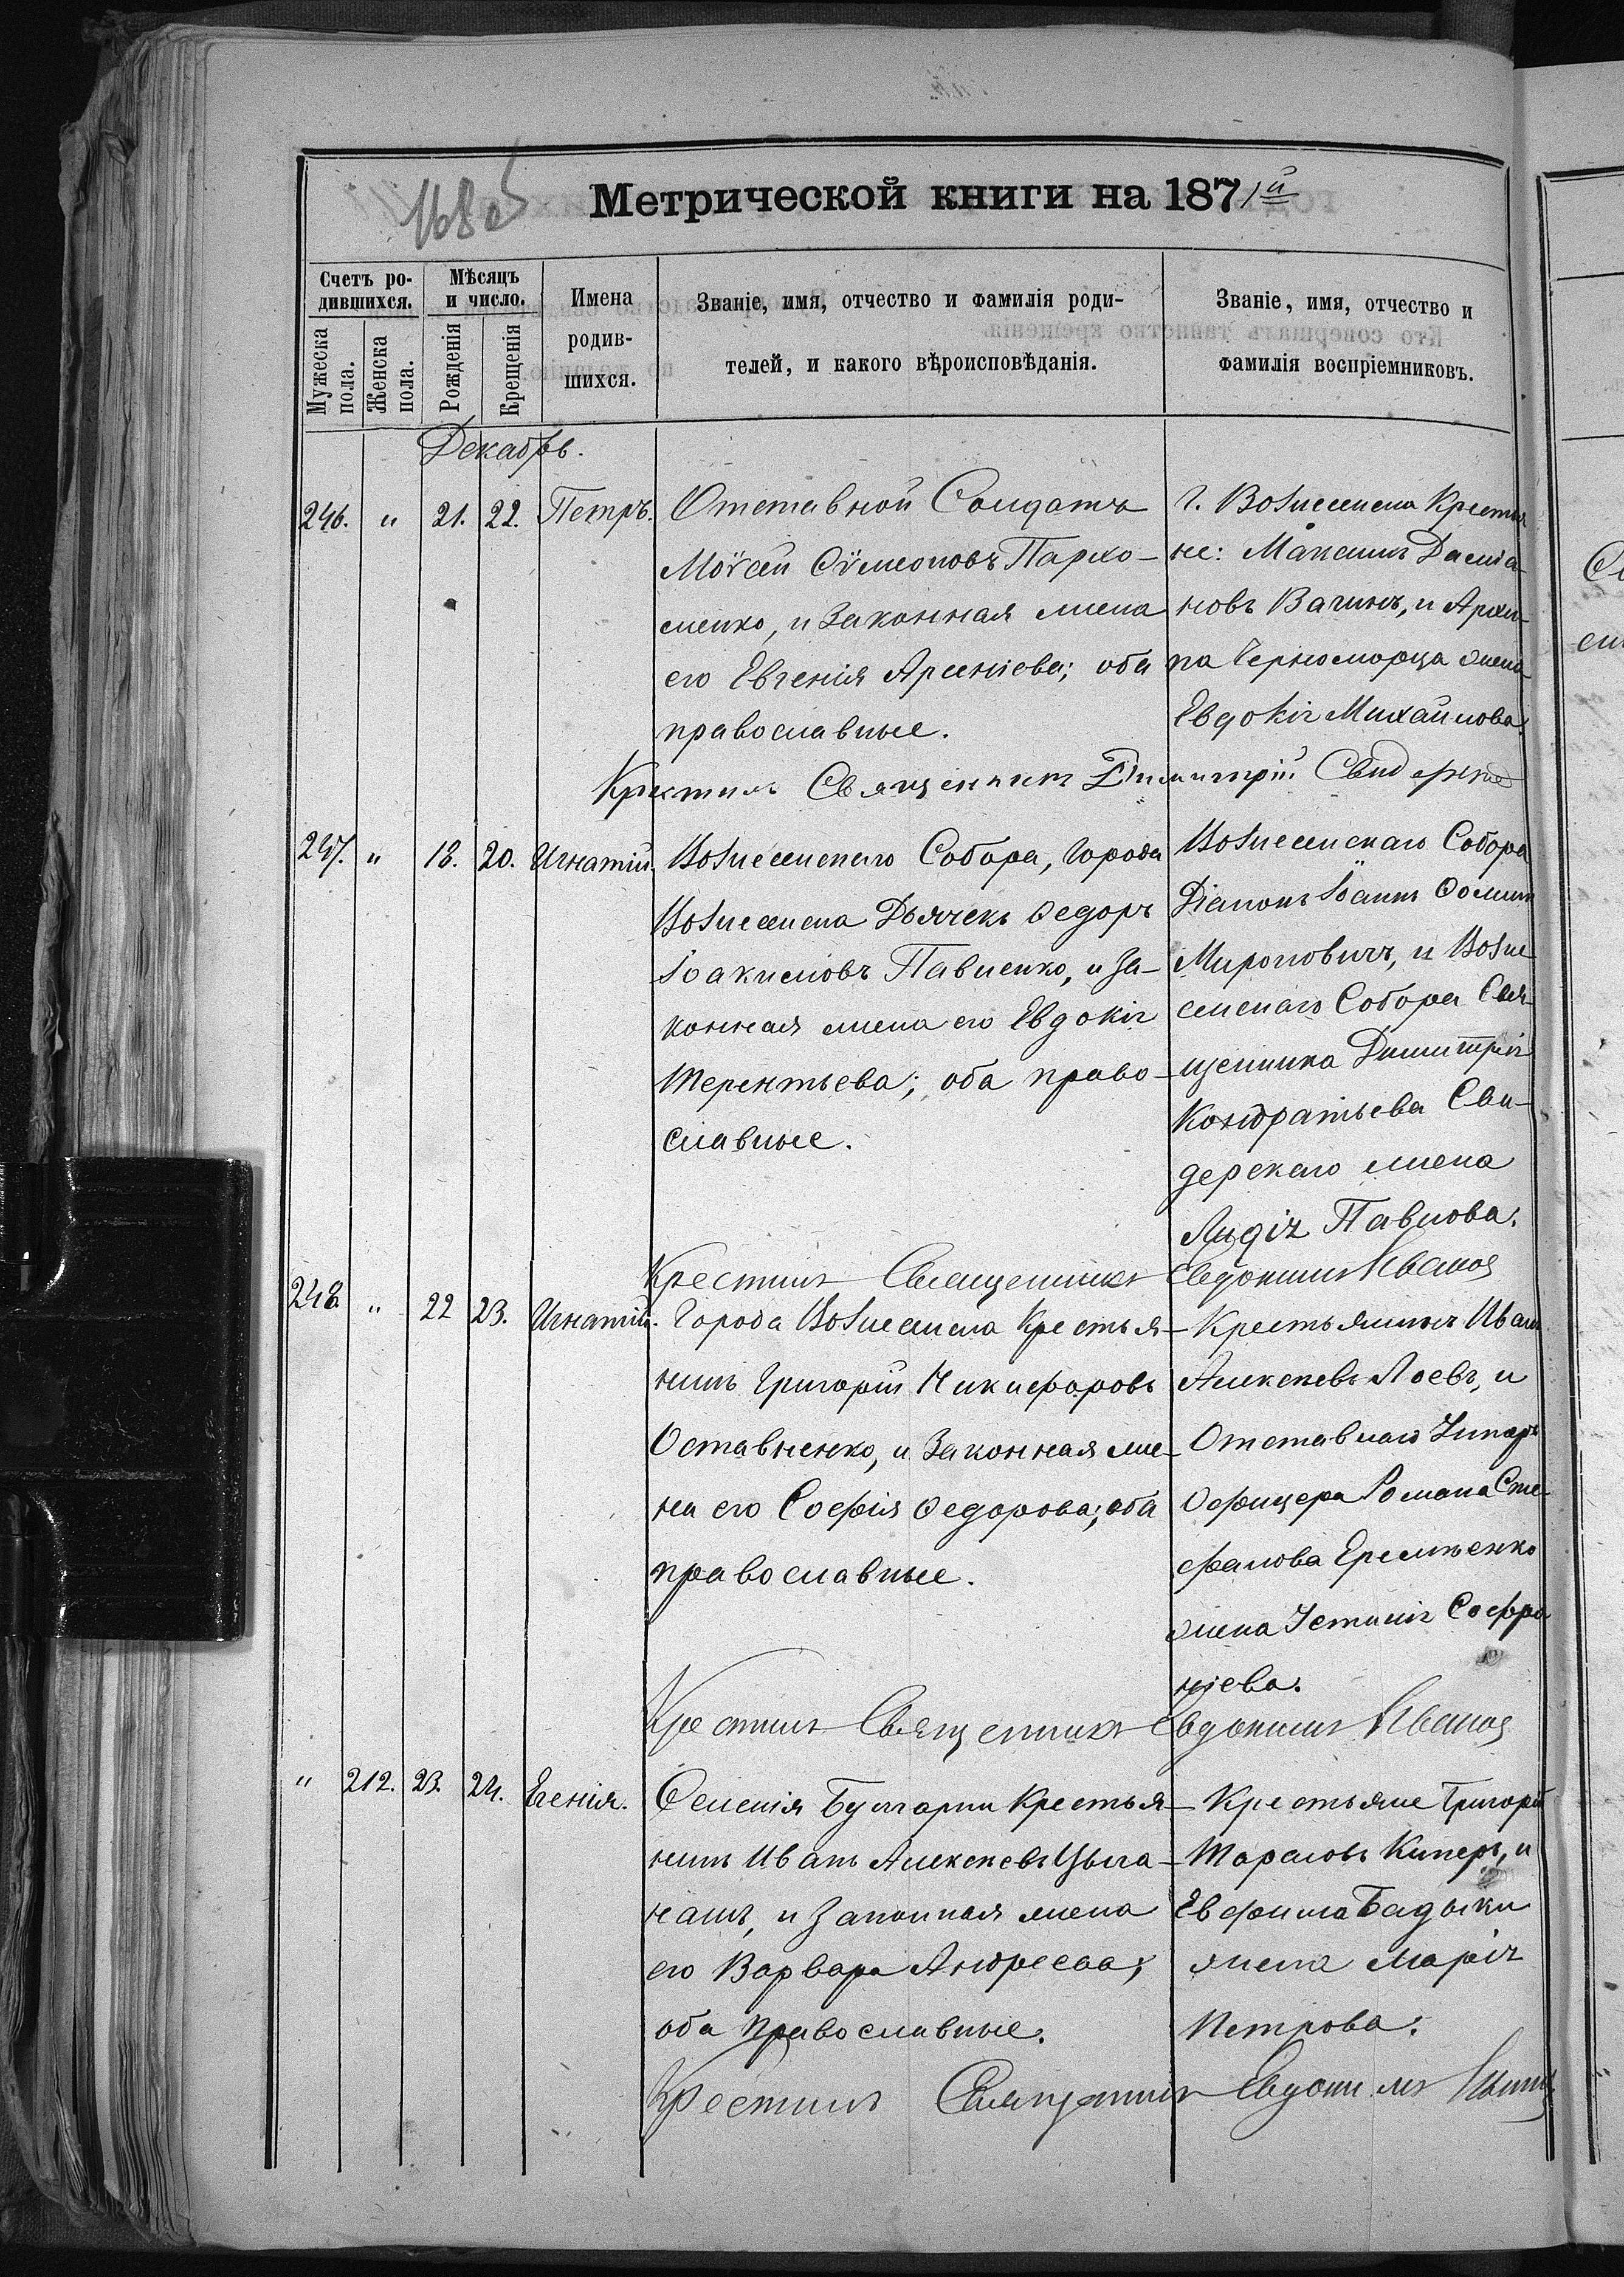 Метрической книги на 1871й
168 об
Счетъ ро-
дившихся.
Мужеска пола.
Женска пола.
Мѣсяцъ
и число.
Рожденія
Крещенія
Имена
родив-
шихся.
Званіе, имя, отчество и фамилія роди-
телей, и какого вѣроисповѣданія.
Званіе, имя, отчество и
фамилія воспріемниковъ.
Декабрь.
246. " 21. 22. Петръ.
Отставной Солдатъ
Моѵсей Сѵмеоновъ Пархо-
менко, и законная жена
его Евгенія Арсеніева; оба
православные.
г. Вознесенска Крестья
не: Максимъ Даміа-
новъ Вагинъ, и Архи-
па Черноморца жена
Евдокія Михайлова.
Крестилъ Священникъ Димитрій Свидерскій
247. " 18. 20. Игнатій.
Вознесенскаго Собора, города
Вознесенска Дьячекъ Ѳедоръ
Іоакимовъ Павленко, и за-
конная жена его Евдокія
Терентьева; оба право-
славные.
Вознесенскаго Собора
Діаконъ Іоаннъ Ѳоминъ
Мироновичъ, и Возне
сенскаго Собора Свя-
щенника Димитрія
Кондратьева Сви-
дерскаго жена
Лидія Павлова.
Крестилъ Священникъ Евдокимъ Иванов
248. " 22 23. Игнатій.
Города Вознесенска Крестья-
нинъ Григорій Никифоровъ
Оставненко, и законная же-
на его Софія Ѳедорова; оба
православные.
Крестьянинъ Иванъ
Алексѣевъ Лоевъ, и
Отставнаго Унтеръ
Офицера Романа Сте-
фанова Еремѣенко
жена Устинія Софро
ніева.
Крестилъ Священникъ Евдокимъ Иванов
" 212. 23. 24. Евгенія.
Селенія Булгарки Крестья-
нинъ Иванъ Алексѣевъ Цыга-
нашъ, и законная жена
его Варвара Андреева;
оба православные.
Крестьяне Григорій
Тарасовъ Киперъ, и
Евфима Бадыки
жена Марія
Петрова.
Крестилъ Священникъ Евдокимъ